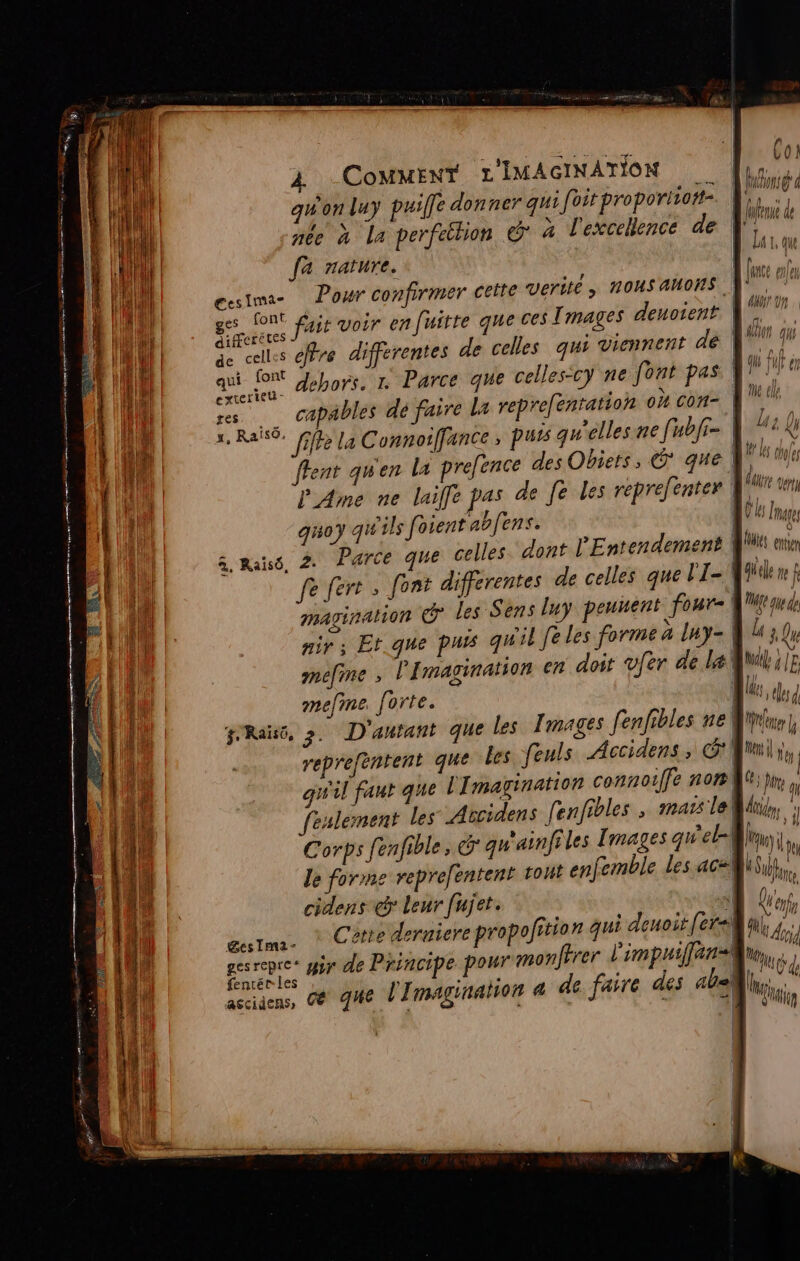 4 COMMENT L'IMAGINATION
qu'on luy puiſſe donner qui ſoit proportion-
née à la perfection & à l'excellence de
ſa nature.
Pour confirmer cette verité, nous auons
fait voir en ſuitte que ces Images deuoient
eſtre differentes de celles qui viennent de
dehors. 1. Parce que celles-cy ne ſont pas
capables de faire la repreſentation où con-
ſiſte la Connoiſſance, puis qu'elles ne ſubſi-
ſtent qu'en la preſence des Obiets, & que
l'Ame ne laiſſe pas de ſe les repreſenter
quoy qu'ils ſoient abſens.
2. Parce que celles dont l'Entendement
ſe ſert, ſont differentes de celles que l'I-
magination & les Sens luy peuuent four-
nir; Et que puis qu'il ſe les forme à luy-
meſme, l'Imagination en doit vſer de la
meſme ſorte.
3. D'autant que les Images ſenſibles ne
repreſentent que les ſeuls Accidens, &
qu'il faut que l'Imagination connoiſſe non
ſeulement les Accidens ſenſibles, mais le
Corps ſenſible, & qu'ainſi les Images qu'el-
le forme repreſentent tout enſemble les ac-
cidens & leur ſujet.
Cette derniere propoſition qui deuoit ſer-
uir de Principe pour monſtrer l'impuiſſan-
ce que l'Imagination a de faire des abs-
Ces Ima-
ges ſont
differētes
de celles
qui ſont
exterieu-
res
1. Raisō.
2. Raisō.
3. Raisō.
Ces Ima-
ges repre-
ſentēt les
accidens,